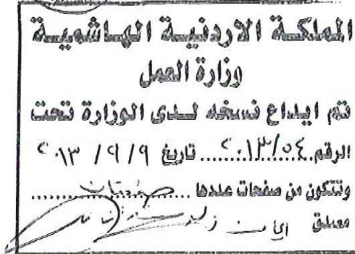 المملكة الاردنية الهاشمية
وزارة العمل
تم ايداع نسخه لدى الوزارة تحت
الرقم ٢٠١٣/٥٤ تاريخ ٩ / ٩ / ٢٠١٣
وتتكون من صفحات عددها صفحتان
معلق